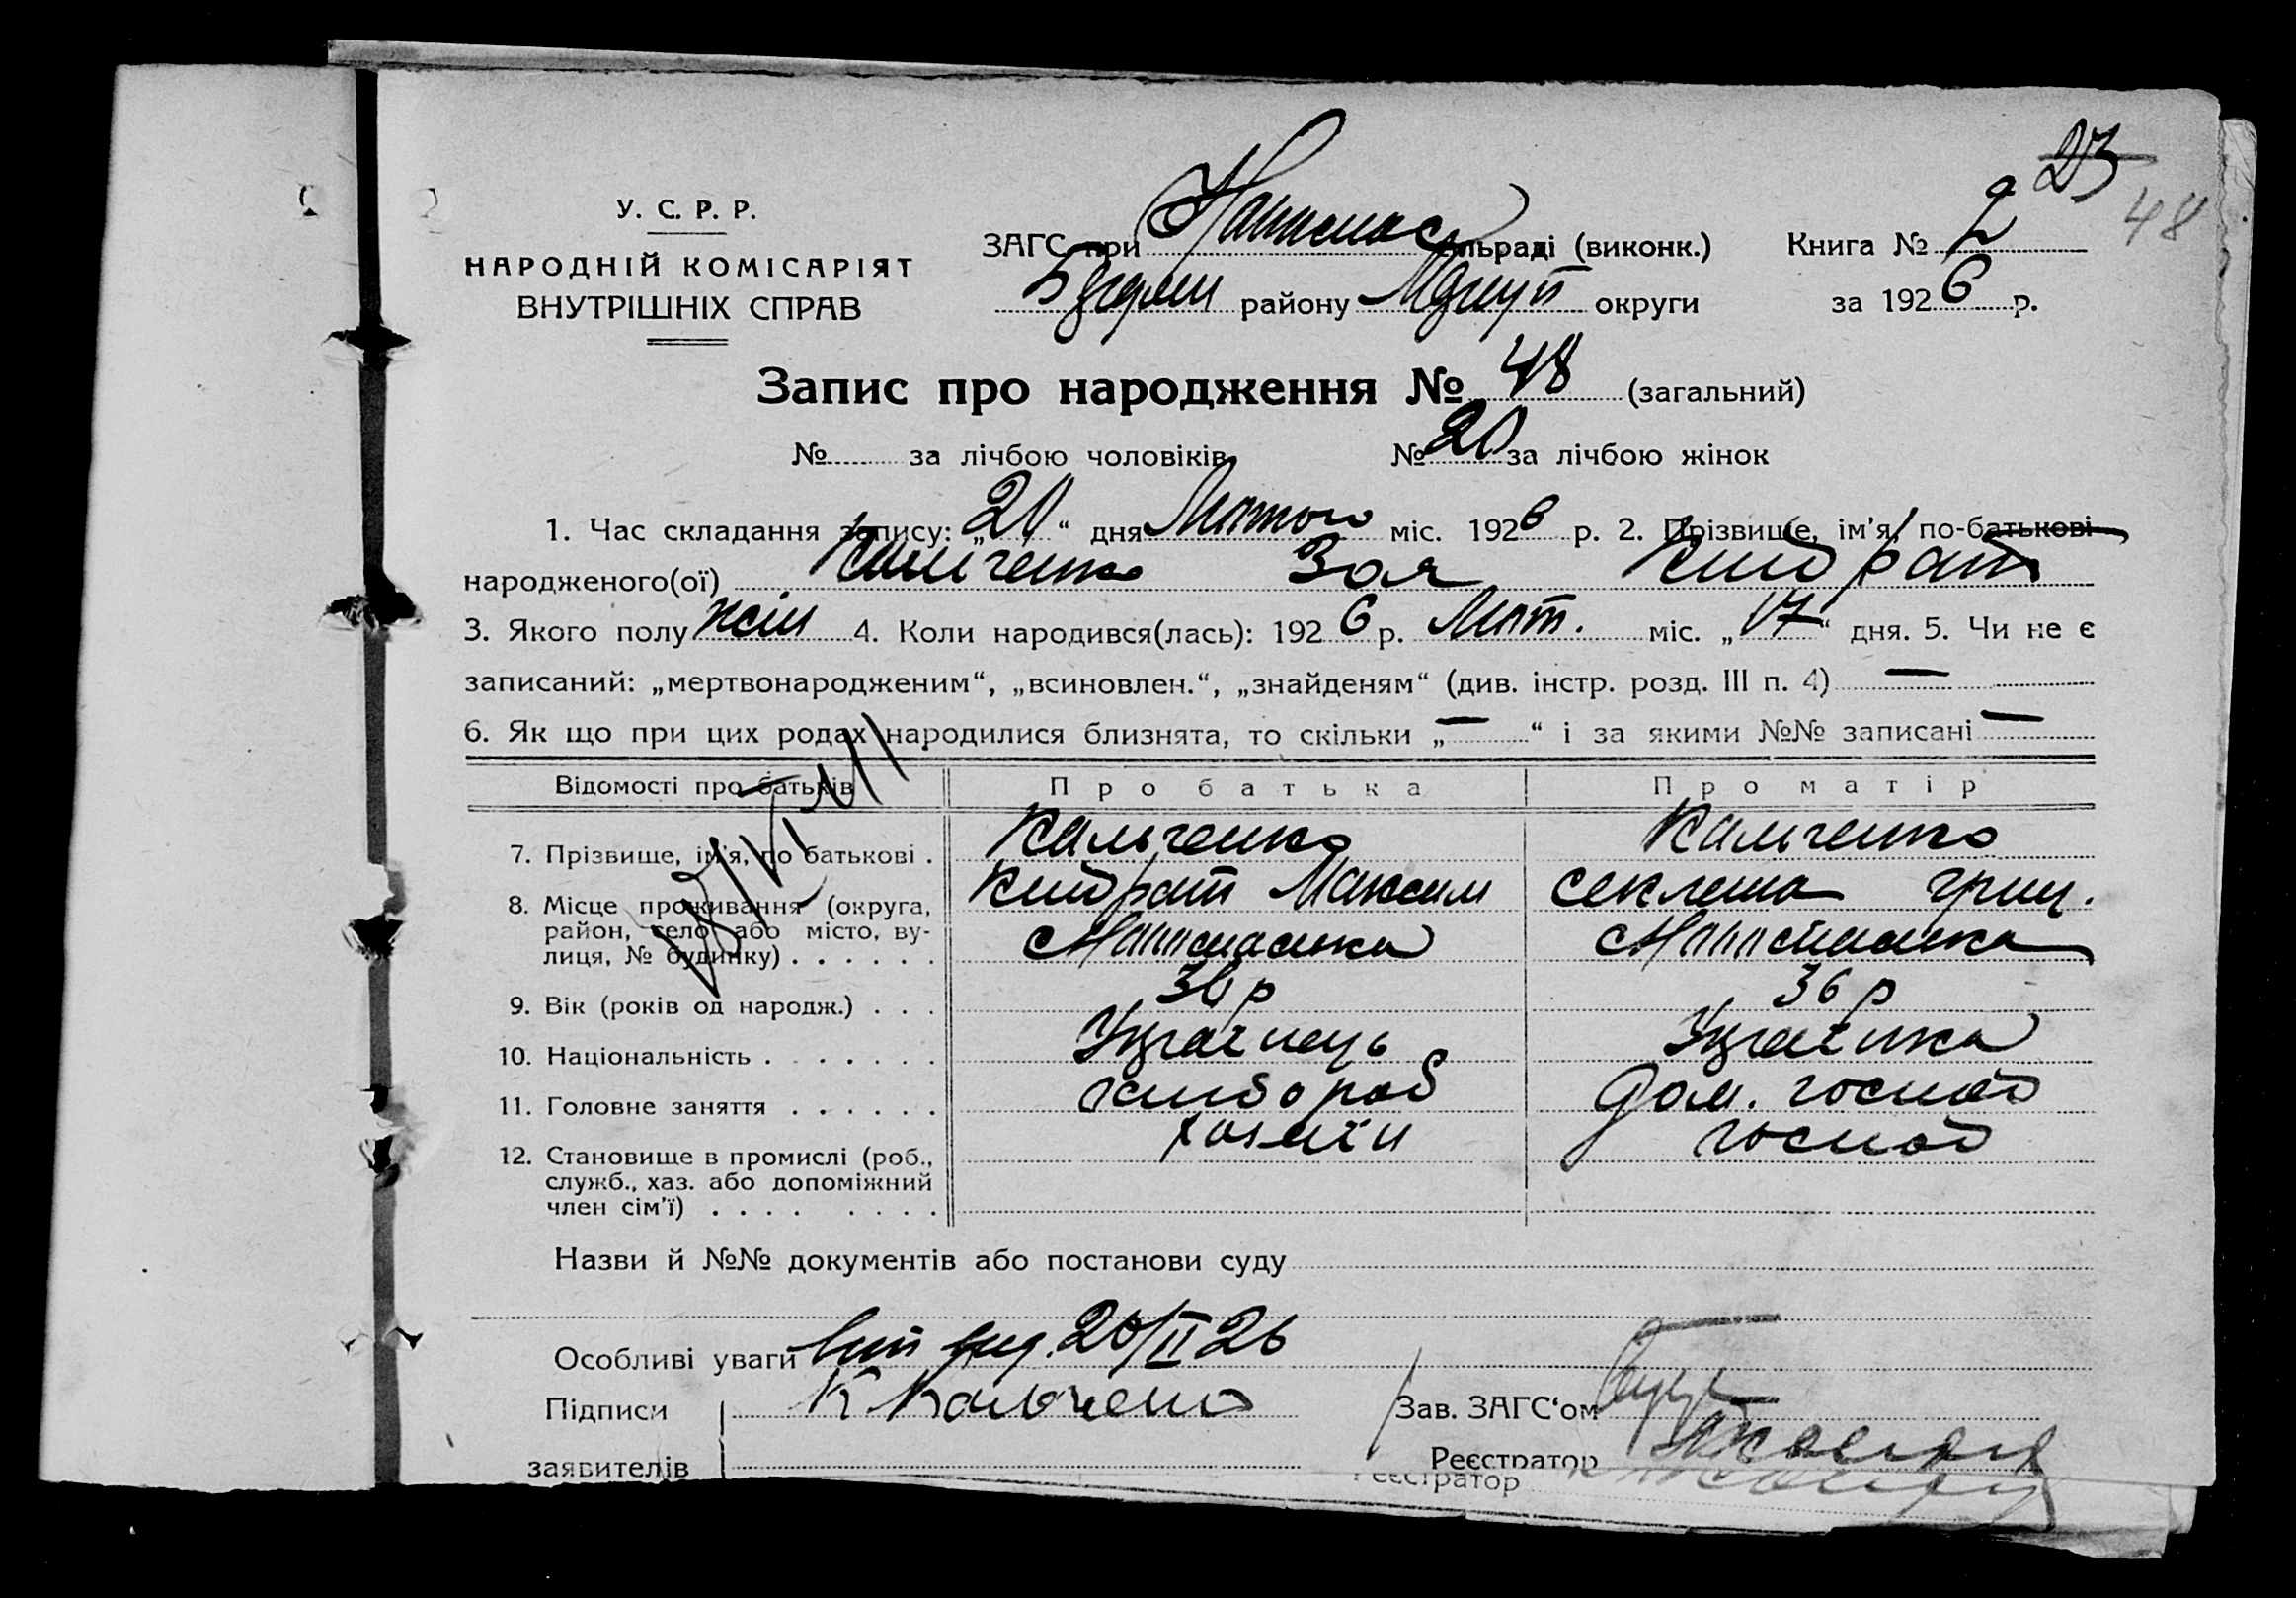 23
48
У. С. Р. Р.
НАРОДНІЙ КОМІСАРІЯТ
ВНУТРІШНІХ СПРАВ
ЗАГС при сільраді (виконк.) Книга № 2
району округи за 1926 р.
Запис про народження № 48 (загальний)
№ за лічбою чоловіків № 20 за лічбою жінок
1. Час складання запису: „20“ дня Лютого міс. 1926 р. 2. Прізвище, ім'я, по-батькові
народженого(ої) Кальченко Зоя Кіндрат
3. Якого полу жін 4. Коли народився(лась): 1926 р. Лют. міс. „17“ дня. 5. Чи не є
записаний: „мертвонародженим“, „всиновлен.“, „знайденям“ (див. інстр. розд. III п. 4) —
6. Як що при цих родах народилися близнята, то скільки „—“ і за якими №№ записані —
Відомості про батьків Про батька Про матір
7. Прізвище, ім'я, по батькові . Кальченко Кальченко
Кіндрат Максим Секлета Гриц.
8. Місце проживання (округа,
район, село або місто, ву-
лиця, № будинку) . . . . . .
9. Вік (років од народж.) . . . 36 р 36 р
10. Національність . . . . . . . Українець Українка
11. Головне заняття . . . . . . хлібороб Дом. господ
12. Становище в промислі (роб., хазяїн господ
служб., хаз. або допоміжний
член сім'ї) . . . . . . . .
Назви й №№ документів або постанови суду
Особливі уваги вид. 20/II 26
Підписи К Кальченко Зав. ЗАГС‘ом
заявителів Реєстратор
Реєстратор